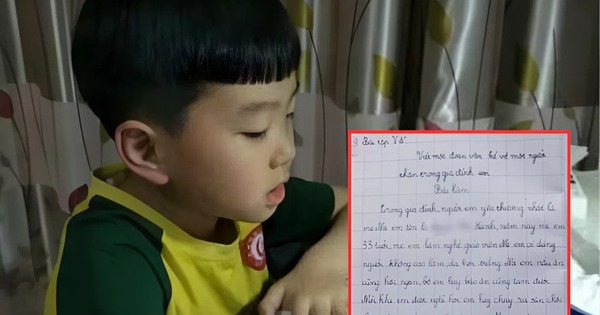 Bài tập
Viết một đoạn văn kể về một người
thân trong gia đình em
Bài làm
Trong gia đình, người em yêu thương nhất là
mẹ Mẹ em tên là năm nay mẹ em
33 tuổi, mẹ em làm nghề giáo viên Mẹ em có dáng
người không cao lắm, da hơi trắng Mẹ em nấu ăn
cũng hơi ngon, bố em hay bảo ăn cũng tạm được
Mỗi khi em được nghỉ học em hay chạy ra sân chơi